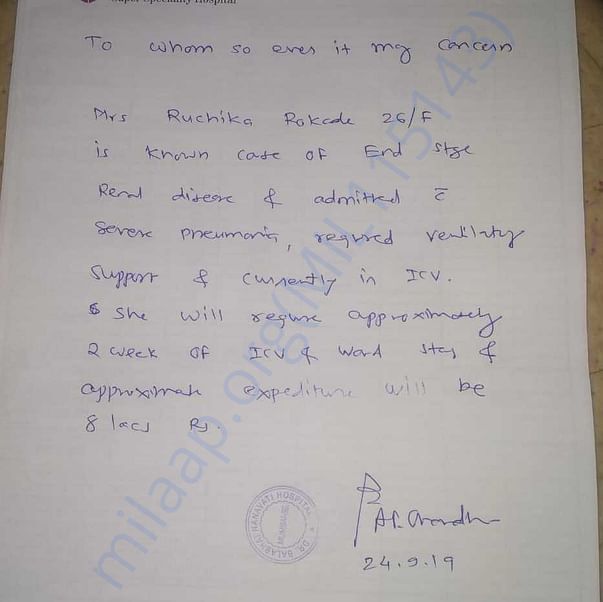 Super Speciality Hospital
To whom so ever it my concern
Mrs Ruchika Rokade 26/F
is known case of End stge
Renal disease & admitted c̄
Severe pneumonia, required ventilaty
Support & currently in ICU.
She will require approximately
2 week of ICU & word stay &
approximate expediture will be
8 lacs Rs.
DR. BALABHAI NANAVATI HOSPITAL
MUMBAI-56
24.9.19
milaap.org(MIL115143)